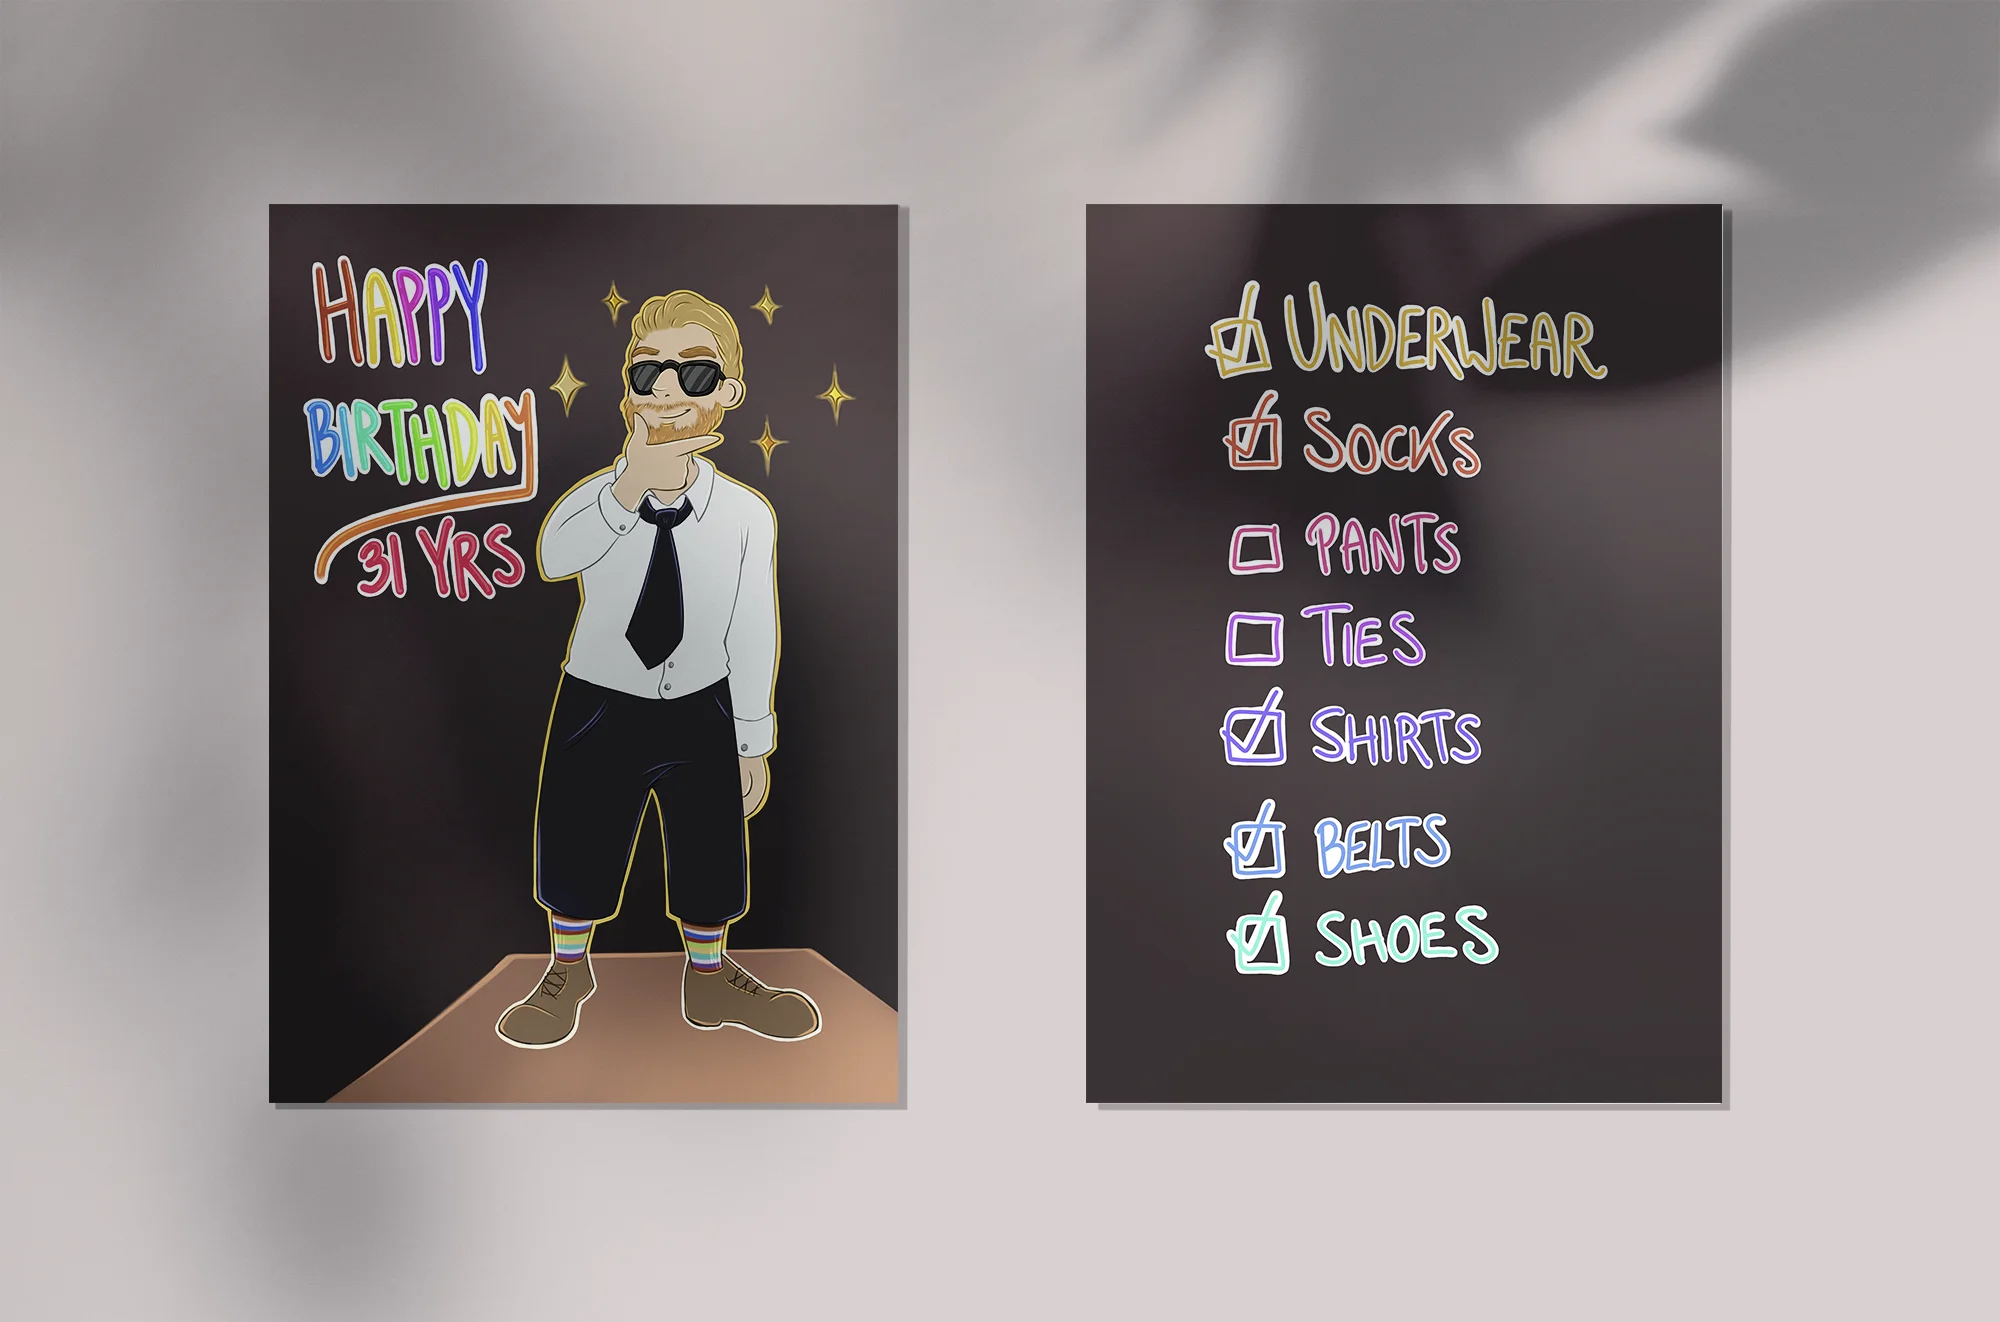 HAPPY
BIRTHDAY
31 YRS
UNDERWEAR
SOCKS
PANTS
TIES
SHIRTS
BELTS
SHOES